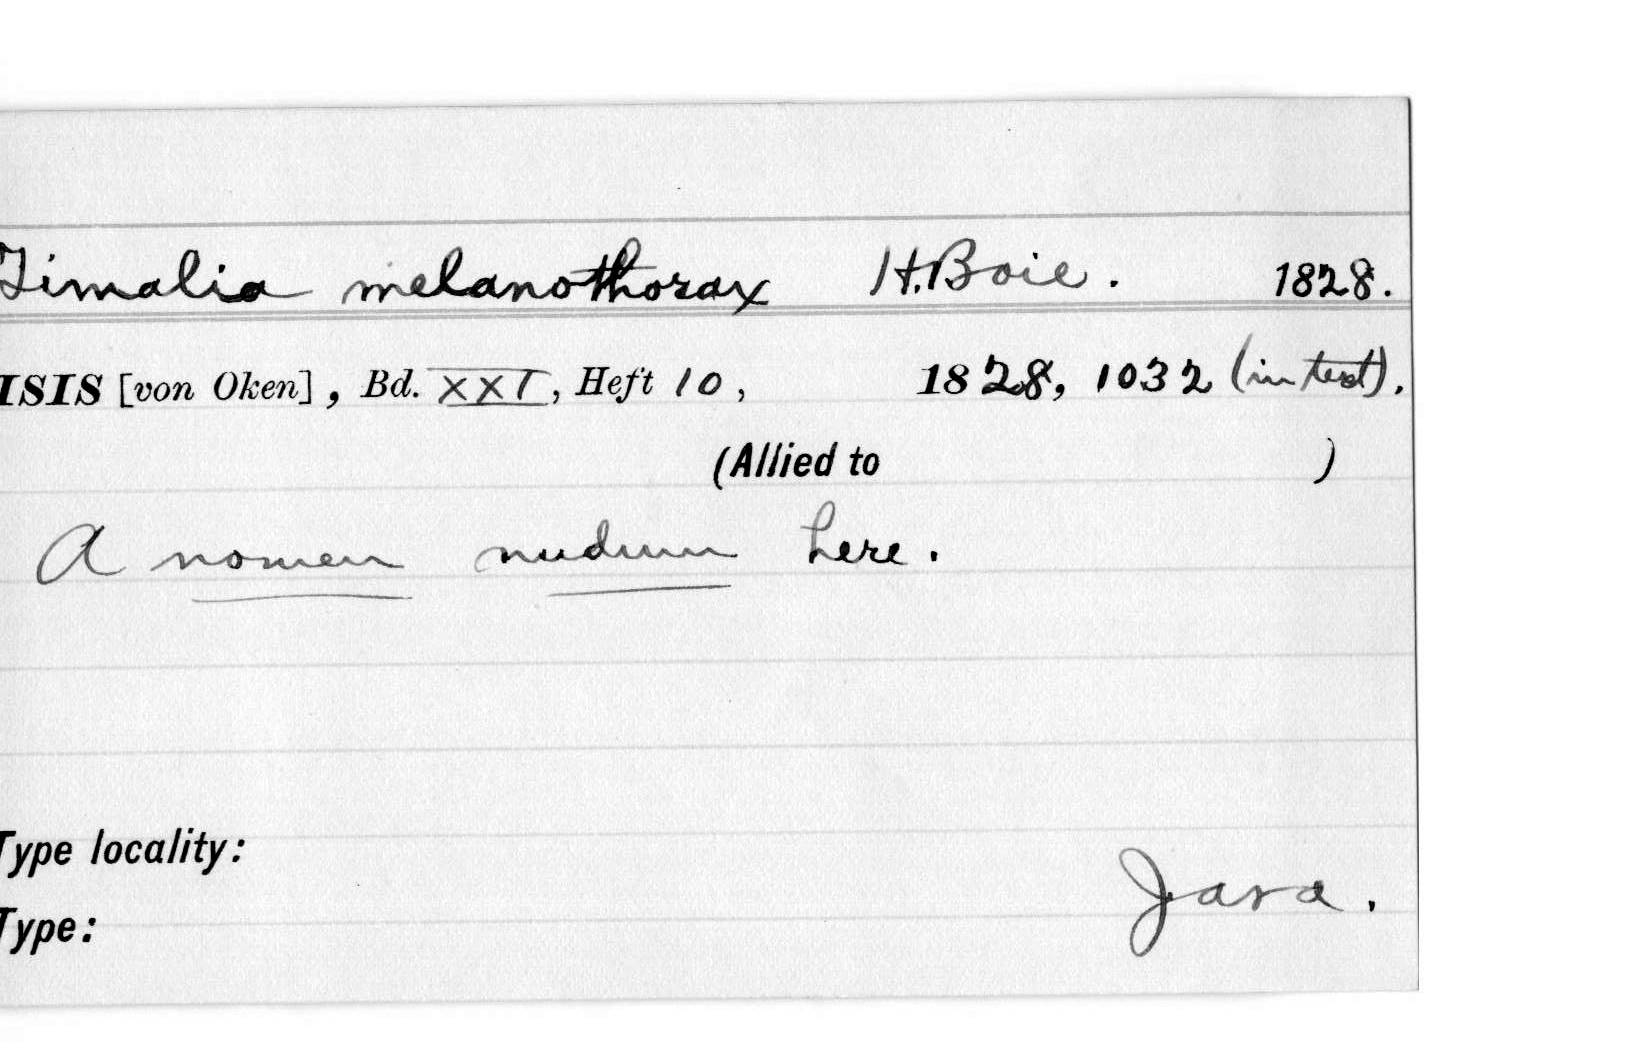 Timalia melanothorax H.Boie. 1828.
ISIS [von Oken], Bd. XXI, Heft 10, 1828, 1032 (in text).
(Allied to )
A nomen nudum here.
Type locality:
Java.
Type: